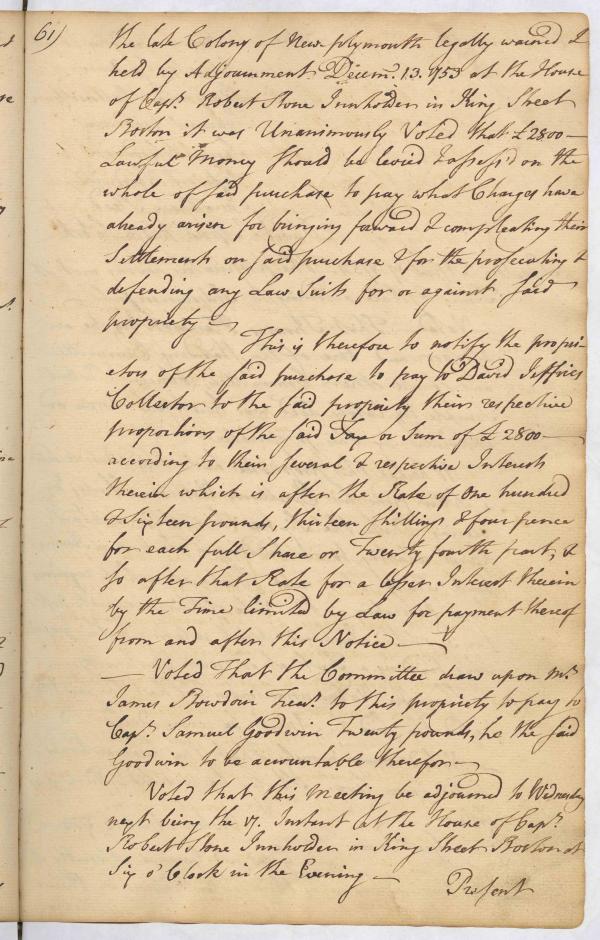 61)
the late Colony of New plymouth legally warned &
held by Adjournment Decemr. 13. 1753 at the House
of Capt. Robert Stone Innholder in King Street
Boston it was Unanimously Voted that £2800 —
Lawful Money should be levied & assess'd on the
whole of said purchase to pay what Charges have
already arisen for bringing forward & compleating their
Settlements on said purchase & for the prosecuting &
defending any Law Suits for or against said
propriety —
This is therefore to notify the propri-
etors of the said purchase to pay to David Jeffries
Collector to the said propriety their respective
proportions of the said Tax or Sum of £2800 —
according to their several & respective Interests
therein which is after the Rate of One hundred
& Sixteen pounds, thirteen shillings & four pence
for each full Share or Twenty fourth part, &
so after that Rate for a lesser Interest therein
by the Time limited by Law for payment thereof
from and after this Notice —
— Voted That the Committee draw upon Mr.
James Bowdoin Treasr. to this propriety to pay to
Capt. Samuel Goodwin Twenty pounds, he the said
Goodwin to be accountable therefor —
Voted that this Meeting be adjourned to Wednesday
next being the Instant at the House of Capt.
Robert Stone Innholder in King Street Boston at
Six o' Clock in the Evening —
Present